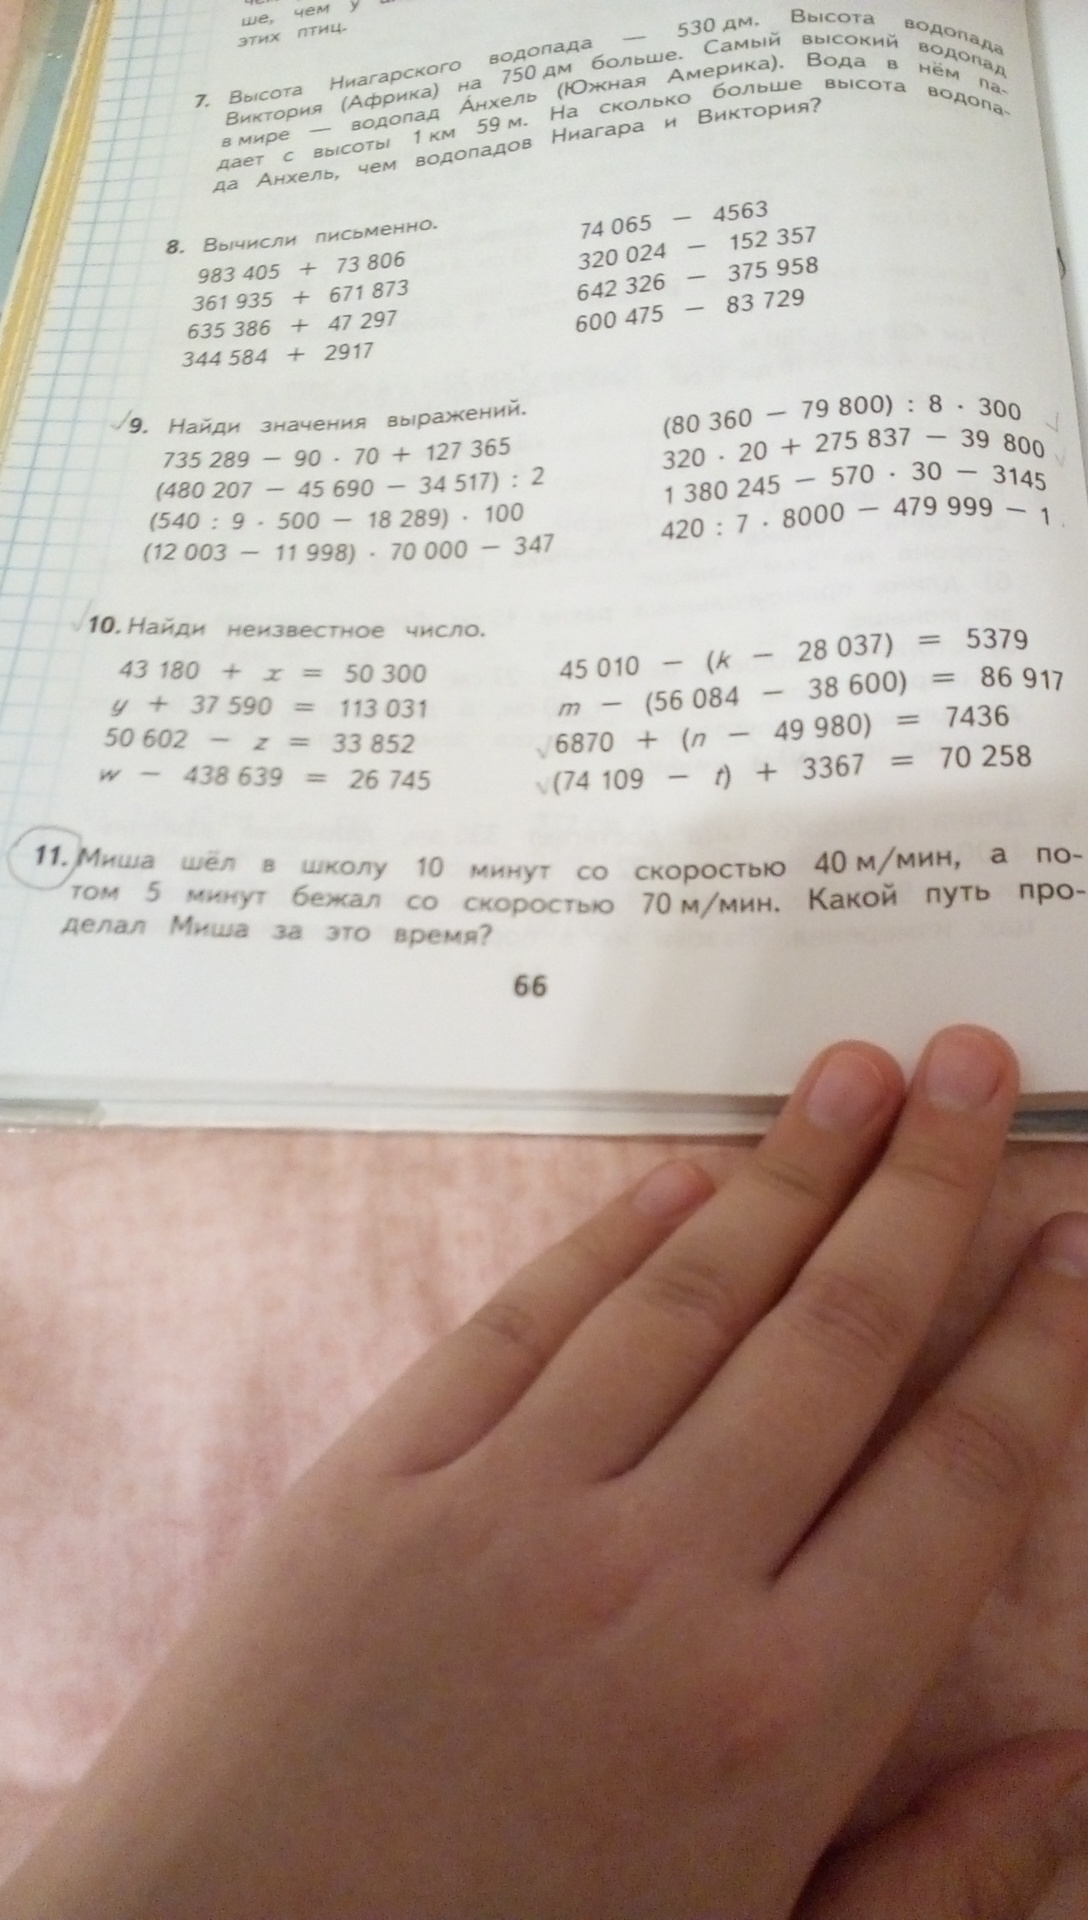 ше, чем у
этих птиц.
7. Высота Ниагарского водопада — 530 дм. Высота водопада
Виктория (Африка) на 750 дм больше. Самый высокий водопад
в мире — водопад Анхель (Южная Америка). Вода в нём па-
дает с высоты 1 км 59 м. На сколько больше высота водопа-
да Анхель, чем водопадов Ниагара и Виктория?
8. Вычисли письменно.
983 405 + 73 806
361 935 + 671 873
635 386 + 47 297
344 584 + 2917
74 065 − 4563
320 024 − 152 357
642 326 − 375 958
600 475 − 83 729
9. Найди значения выражений.
735 289 − 90 · 70 + 127 365
(480 207 − 45 690 − 34 517) : 2
(540 : 9 · 500 − 18 289) · 100
(12 003 − 11 998) · 70 000 − 347
(80 360 − 79 800) : 8 · 300
320 · 20 + 275 837 − 39 800
1 380 245 − 570 · 30 − 3145
420 : 7 · 8000 − 479 999 − 1
10. Найди неизвестное число.
43 180 + x = 50 300
y + 37 590 = 113 031
50 602 − z = 33 852
w − 438 639 = 26 745
45 010 − (k − 28 037) = 5379
m − (56 084 − 38 600) = 86 917
6870 + (n − 49 980) = 7436
(74 109 − t) + 3367 = 70 258
11. Миша шёл в школу 10 минут со скоростью 40 м/мин, а по-
том 5 минут бежал со скоростью 70 м/мин. Какой путь про-
делал Миша за это время?
66